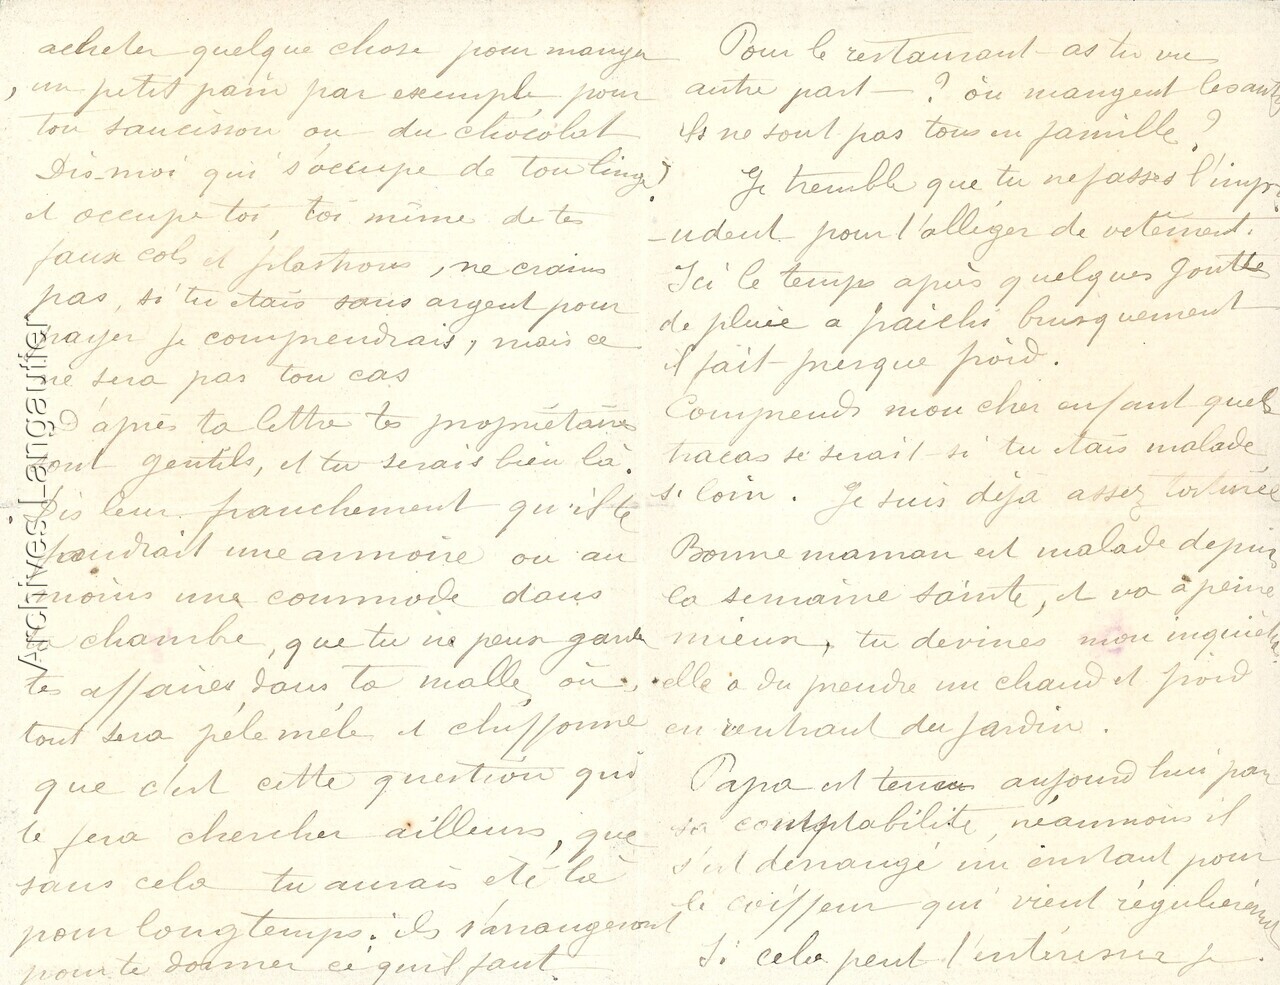 acheter quelque chose pour manger
, un petit pain par exemple, pour
ton saucisson ou du chocolat
Dis moi qui s'occupe de ton linge ?
et occupe toi, toi même de tes
faux cols et plastrons, ne crains
pas, si tu étais sans argent pour
payer je comprendrais, mais ce
ne sera pas ton cas
D'après ta lettre tes propriétaires
sont gentils, et tu serais bien là.
Dis leur franchement qu'il te
faudrait une armoire ou au
moins une commode dans
ta chambre, que tu ne peux garder
tes affaires dans ta malle, où
tout sera pêle mêle et chiffonné
que c'est cette question qui
te fera chercher ailleurs, que
sans cela tu aurais été là
pour longtemps. ils s'arrangeront
pour te donner ce qu'il faut.
Pour le restaurant as tu vu
autre part — ? où mangent les autres
Ils ne sont pas tous en famille ?
Je tremble que tu ne fasses l'impr-
-udent pour t'alléger de vêtement.
Ici le temps après quelques goutte
de pluie a fraichi brusquement
il fait presque froid.
Comprends mon cher enfant quel
tracas se serait si tu étais malade
si loin. Je suis déjà assez torturée
Bonne maman est malade depuis
la semaine sainte, et va à peine
mieux, tu devines mon inquiét.
elle a du prendre un chaud et froid
en rentrant du jardin.
Papa est tenu aujourd'hui par
sa comptabilité, néanmoins il
s'est dérangé un instant pour
le coiffeur qui vient régulièrement
Si cela peut t'intéresser je
Archives Langautier